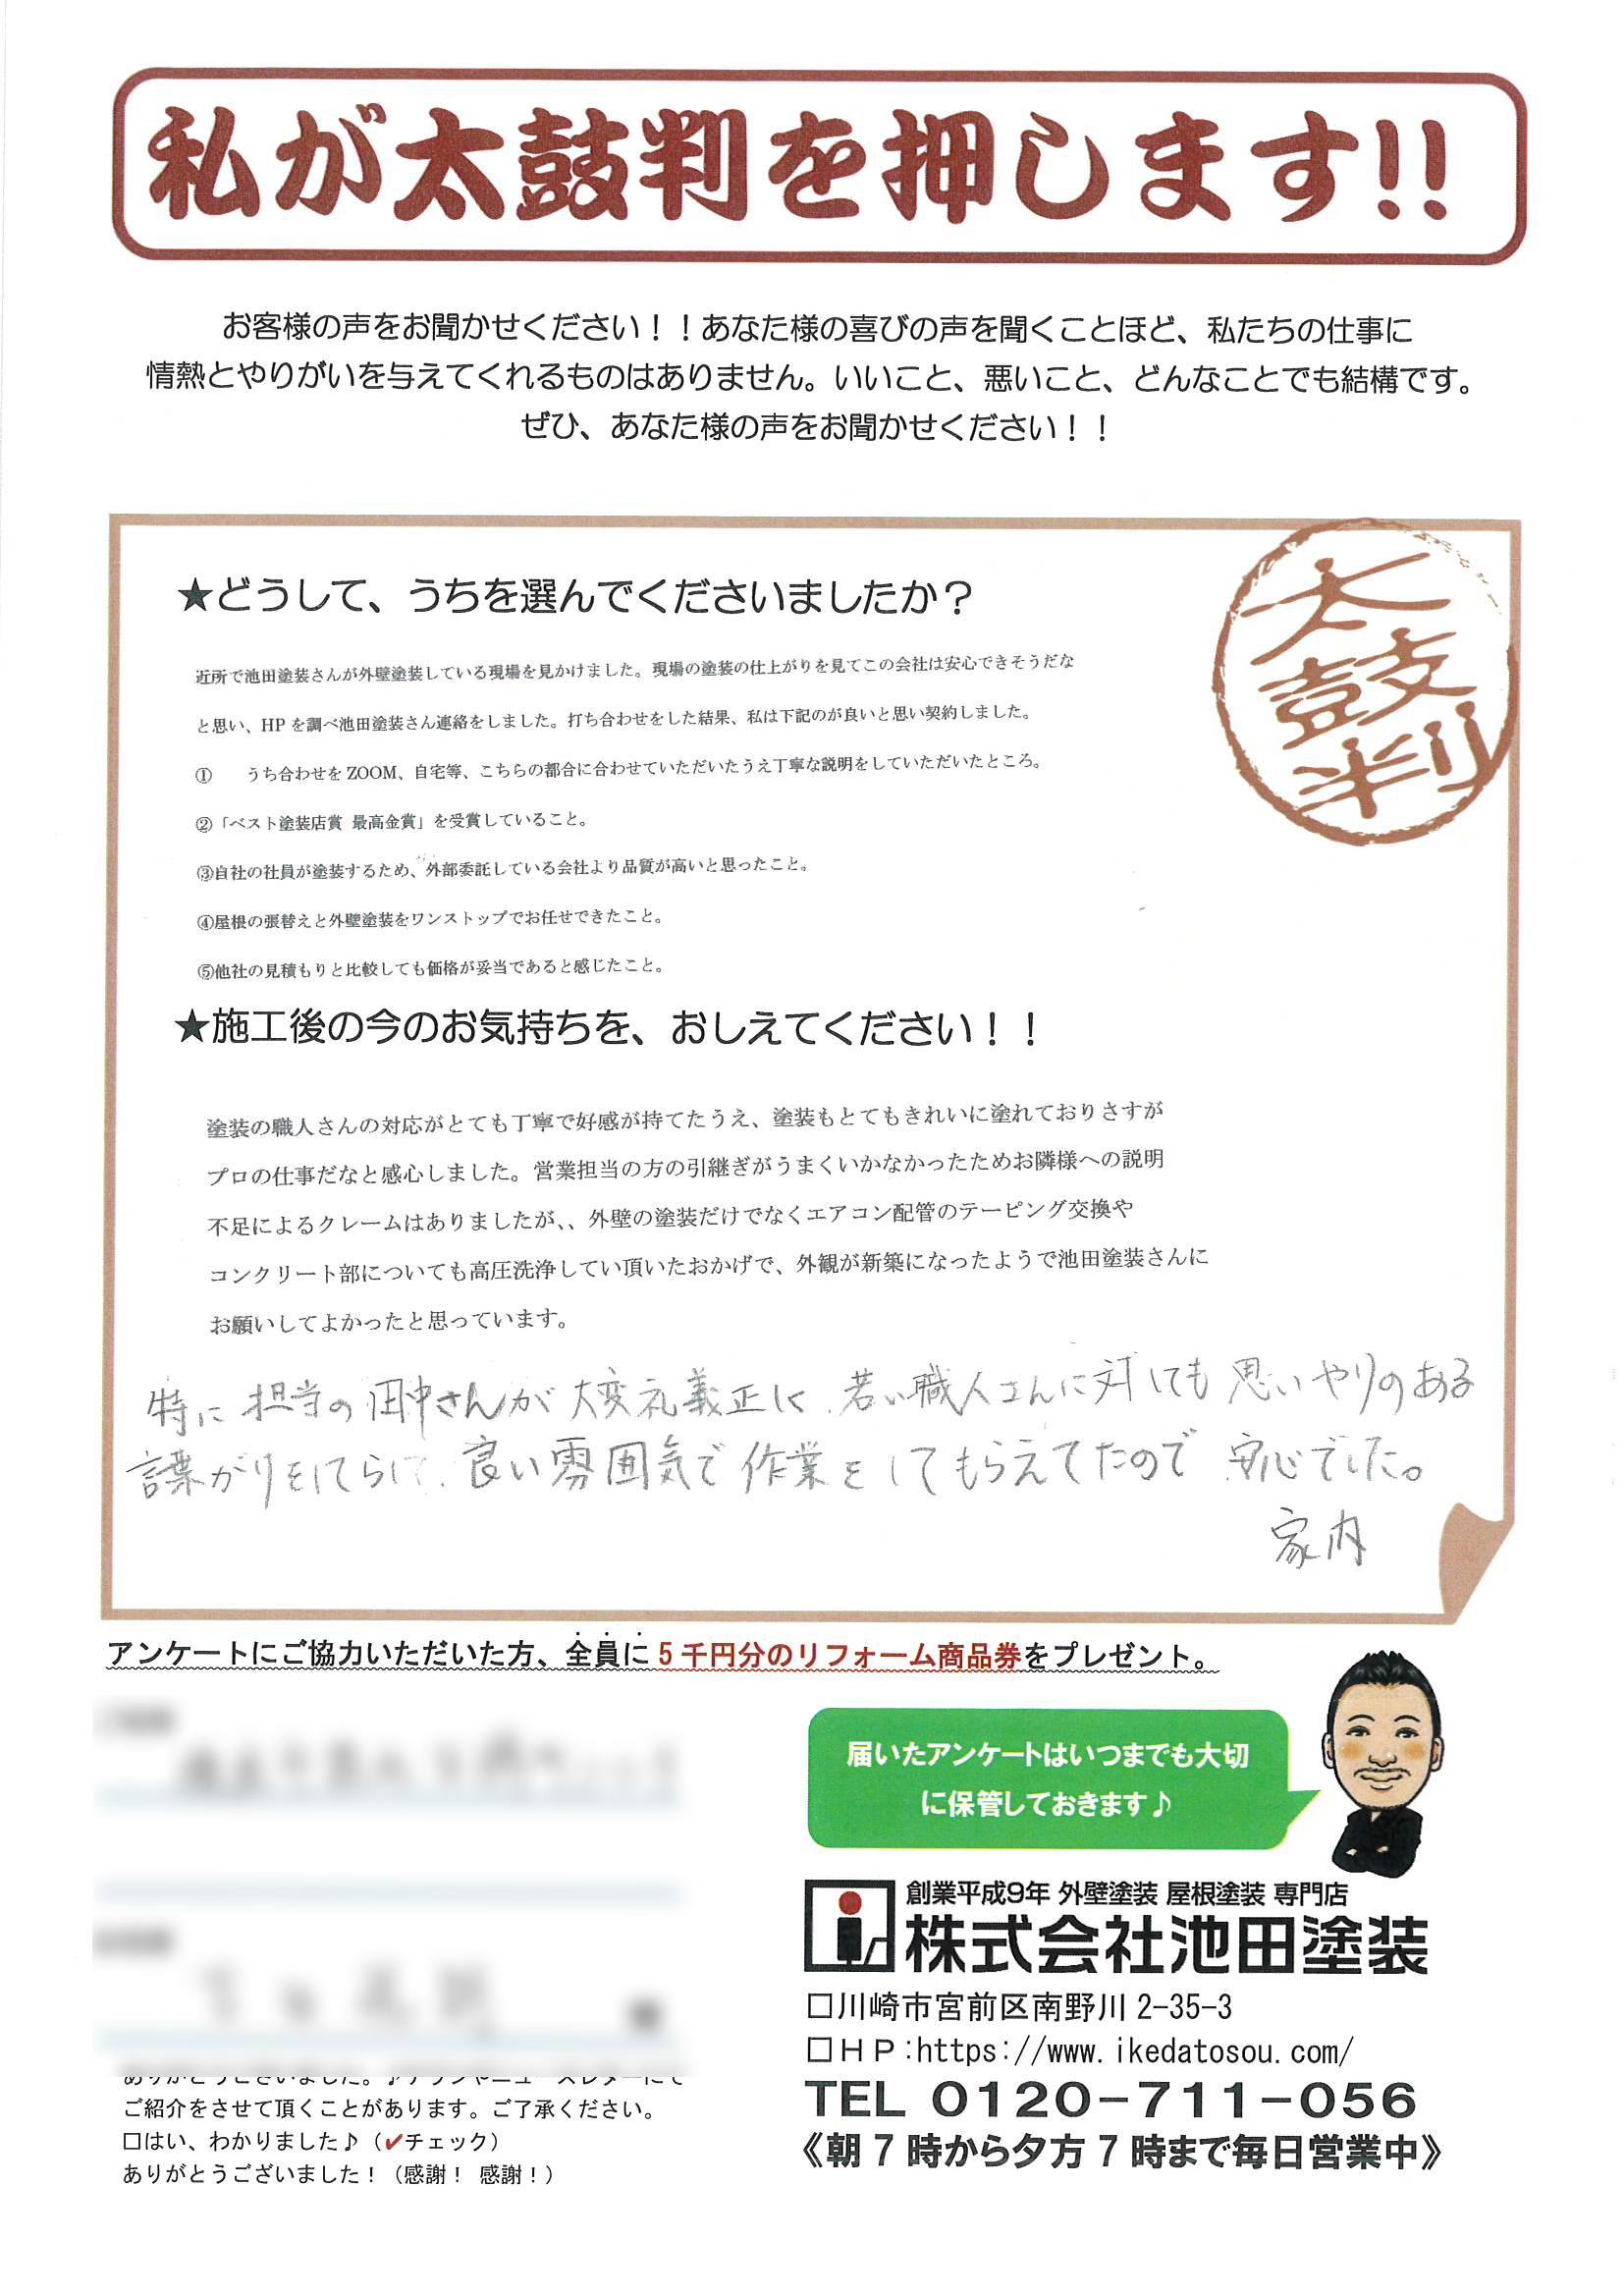 私が太鼓判を押します!!
お客様の声をお聞かせください！！あなた様の喜びの声を聞くことほど、私たちの仕事に
情熱とやりがいを与えてくれるものはありません。いいこと、悪いこと、どんなことでも結構です。
ぜひ、あなた様の声をお聞かせください！！
太鼓判
★どうして、うちを選んでくださいましたか？
近所で池田塗装さんが外壁塗装している現場を見かけました。現場の塗装の仕上がりを見てこの会社は安心できそうだな
と思い、HP を調べ池田塗装さん連絡をしました。打ち合わせをした結果、私は下記のが良いと思い契約しました。
①　うち合わせを ZOOM、自宅等、こちらの都合に合わせていただいたうえ丁寧な説明をしていただいたところ。
②「ベスト塗装店賞 最高金賞」を受賞していること。
③自社の社員が塗装するため、外部委託している会社より品質が高いと思ったこと。
④屋根の張替えと外壁塗装をワンストップでお任せできたこと。
⑤他社の見積もりと比較しても価格が妥当であると感じたこと。
★施工後の今のお気持ちを、おしえてください！！
塗装の職人さんの対応がとても丁寧で好感が持てたうえ、塗装もとてもきれいに塗れておりさすが
プロの仕事だなと感心しました。営業担当の方の引継ぎがうまくいかなかったためお隣様への説明
不足によるクレームはありましたが、、外壁の塗装だけでなくエアコン配管のテーピング交換や
コンクリート部についても高圧洗浄してい頂いたおかげで、外観が新築になったようで池田塗装さんに
お願いしてよかったと思っています。
特に担当の田中さんが大変礼義正しく、若い職人さんに対しても思いやりのある
言葉がけをして 良い雰囲気で作業をしてもらえてたので 安心でした。
家内
アンケートにご協力いただいた方、全員に 5 千円分のリフォーム商品券をプレゼント。
届いたアンケートはいつまでも大切
に保管しておきます♪
創業平成9年 外壁塗装 屋根塗装 専門店
株式会社池田塗装
□川崎市宮前区南野川 2-35-3
□ＨＰ:https://www.ikedatosou.com/
TEL 0120-711-056
《朝 7 時から夕方 7 時まで毎日営業中》
ありがとうございました。♪チラシやニュースレターにて
ご紹介をさせて頂くことがあります。ご了承ください。
□はい、わかりました♪（✔チェック）
ありがとうございました！（感謝！ 感謝！）